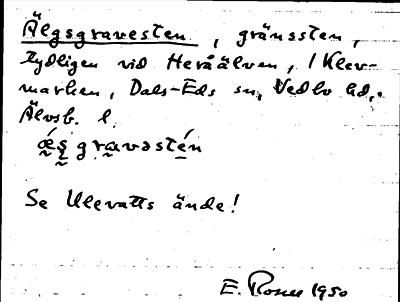 Älgsgravesten, gränssten,
tydligen vid Heråälven, i Klev-
marken, Dals-Eds sn, Vedbo hd,
Älvsb. l.
ǽş gravəstén
Se Ulevatts ände!
E. Rosell 1950